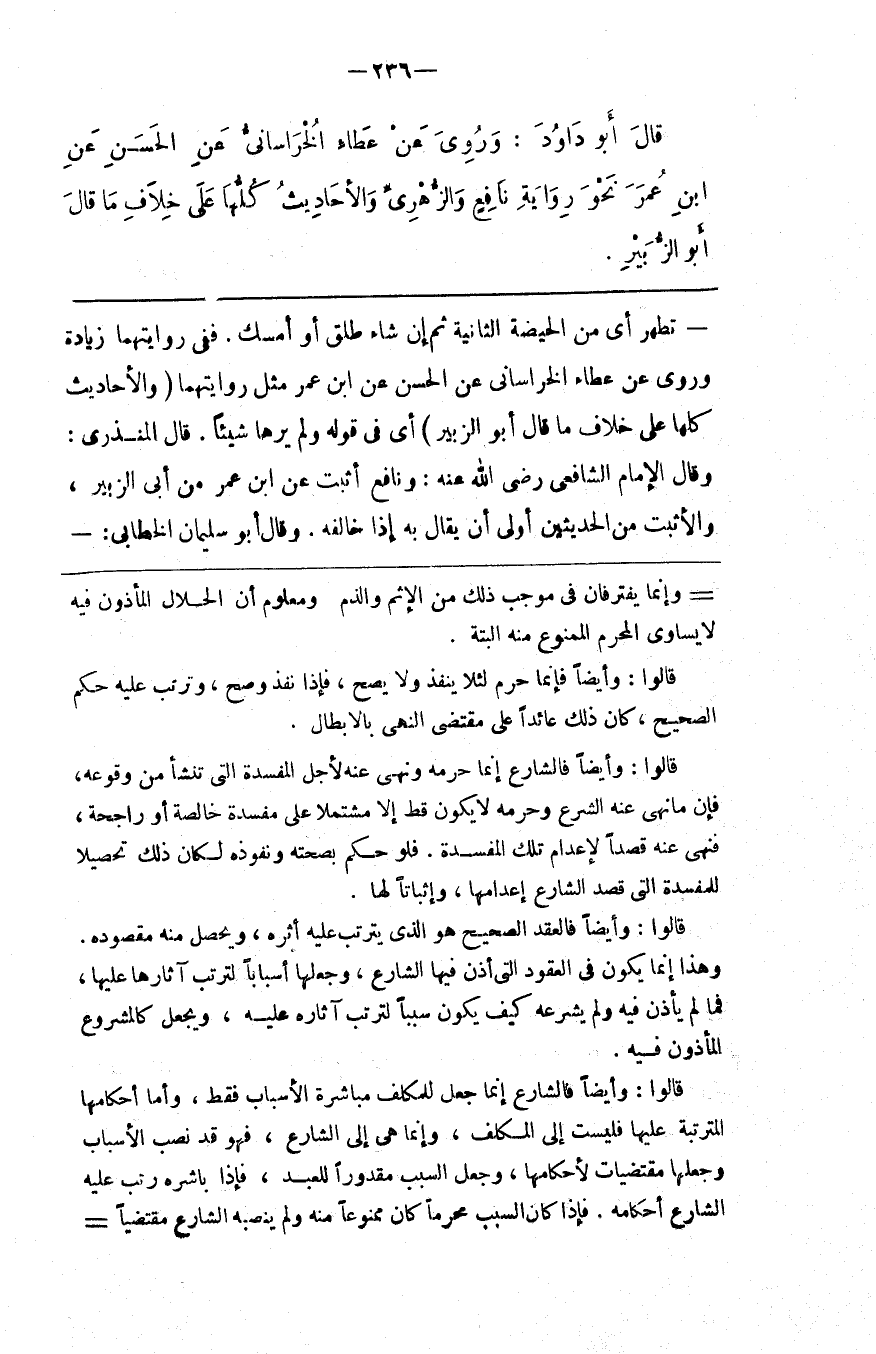 —٢٣٦—
قالَ أَبو دَاوُدَ : وَرُوِىَ عَنْ عَطاءِ الْخُرَاسانىُّ عَنِ الحَسَنِ عَنِ
ابنِ عُمَرَ نَحْوَ رِوَايَةِ نَافِعٍ وَالزُّهْرِىِّ وَالأَحَادِيثُ كُلُّهَا عَلَى خِلاَفِ مَا قالَ
أَبو الزُّبَيْرِ .
— تطهر أى من الحيضة الثانية ثم إن شاء طلق أو أمسك . ففى روايتهما زيادة
وروى عن عطاء الخراسانى عن الحسن عن ابن عمر مثل روايتهما ( والأحاديث
كلها على خلاف ما قال أبو الزبير ) أى فى قوله ولم يرها شيئاً . قال المنـذرى :
وقال الإمام الشافعى رضى الله عنه : ونافع أثبت عن ابن عمر من أبى الزبير ،
والأثبت من الحديثين أولى أن يقال به إذا خالفه . وقال أبو سليمان الخطابى : —
= وإنما يفترفان فى موجب ذلك من الإثم والذم ومعلوم أن الحـلال المأذون فيه
لايساوى المحرم الممنوع منه البتة .
قالوا : وأيضاً فإنما حرم لئلا ينفذ ولا يصح ، فإذا نفذ وصح ، وترتب عليه حكم
الصحيح ، كان ذلك عائداً على مقتضى النهى بالابطال .
قالوا : وأيضاً فالشارع إنما حرمه ونهى عنه لأجل المفسدة التى تنشأ من وقوعه،
فإن مانهى عنه الشرع وحرمه لايكون قط إلا مشتملا على مفسدة خالصة أو راجحة ،
فنهى عنه قصداً لإعدام تلك المفســدة . فلو حـكم بصحته ونفوذه لـكان ذلك تحصيلا
للمفسدة التى قصد الشارع إعدامها ، وإثباتاً لها .
قالوا : وأيضاً فالعقد الصحيح هو الذى يترتب عليه أثره ، ويحصل منه مقصوده .
وهذا إنما يكون فى العقود التى أذن فيها الشارع ، وجعلها أسباباً لترتب آثارها عليها ،
فما لم يأذن فيه ولم يشرعه كيف يكون سبباً لترتب آثاره عليــه ، ويجعل كالمشروع
المأذون فـيه .
قالوا : وأيضاً فالشارع إنما جعل للمكلف مباشرة الأسباب فقط ، وأما أحكامها
المترتبة عليها فليست إلى المـكلف ، وإنما هى إلى الشارع ، فهو قد نصب الأسباب
وجعلها مقتضيات لأحكامها ، وجعل السبب مقدوراً للعبـد ، فإذا باشره رتب عليه
الشارع أحكامه . فإذا كان السبب محرماً كان ممنوعاً منه ولم ينصبه الشارع مقتضياً =